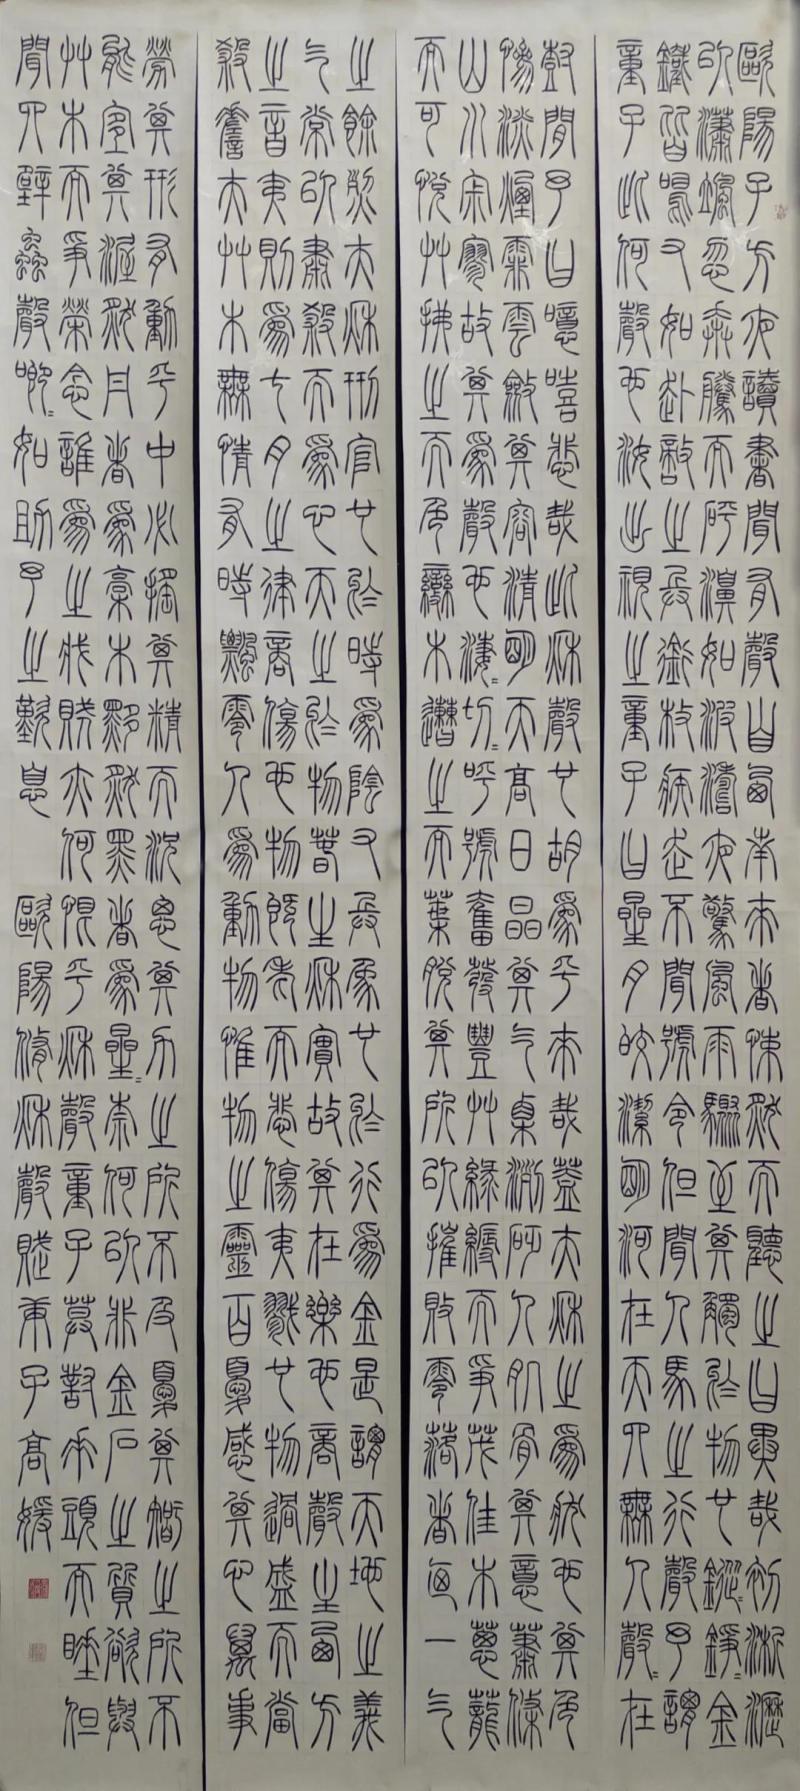 歐陽子方夜讀書聞有聲自西南來者悚然而聽之曰異哉初淅瀝
以瀟颯忽奔騰而砰湃如波濤夜驚風雨驟至其觸於物也鏦〻錚〻金
鐵皆鳴又如赴敵之兵銜枚疾走不聞號令但聞人馬之行聲予謂
童子此何聲也汝出視之童子曰星月皎潔明河在天四無人聲〻在
樹間予曰噫嘻悲哉此秋聲也胡為乎來哉蓋夫秋之為狀也其色
慘淡煙霏雲斂其容清明天高日晶其氣栗冽砭人肌骨其意蕭條
山川寂寥故其為聲也淒〻切〻呼號奮發豐草綠縟而爭茂佳木蔥蘢
而可悅草拂之而色變木遭之而葉脫其所以摧敗零落者乃一氣
之餘烈夫秋刑官也於時為陰又兵象也於行為金是謂天地之義
氣常以肅殺而為心天之於物春生秋實故其在樂也商聲主西方
之音夷則為七月之律商傷也物既老而悲傷夷戮也物過盛而當
殺嗟夫草木無情有時飄零人為動物惟物之靈百憂感其心萬事
勞其形有動乎中必搖其精而況思其力之所不及憂其智之所不
能宜其渥然丹者為槁木黟然黑者為星〻奈何以非金石之質欲與
草木而爭榮念誰為之戕賊亦何恨乎秋聲童子莫對垂頭而睡但
聞四壁蟲聲唧〻如助予之歎息 歐陽修秋聲賦庚子高媛